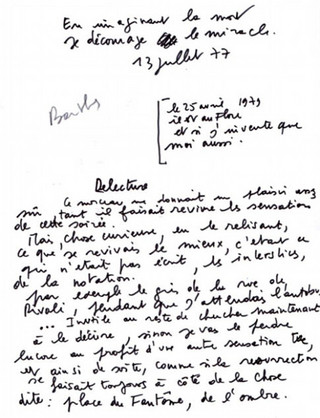 En imaginant la mort
je décourage le miracle.
13 juillet 77
Barthes
le 25 avril 1979
il est au Flore
et si j'invente que
moi aussi.
Delecture
Ce morceau me donnait un plaisir assez
sûr tant il faisait revivre les sensations
de cette soirée.
Mais, chose curieuse, en le relisant,
ce que je revivais le mieux, c'était ce
qui n'était pas écrit, les interstices,
de la notation.
par exemple le gris de la rue de
Rivoli, pendant que j'attendais l'autobus
... Inutile au reste de chercher maintenant
à le décrire, sinon je vais le perdre
encore au profit d'une autre sensation tue,
et ainsi de suite, comme si la résurrection
se faisait toujours à côté de la chose
dite : place du Fantôme, de l'Ombre.